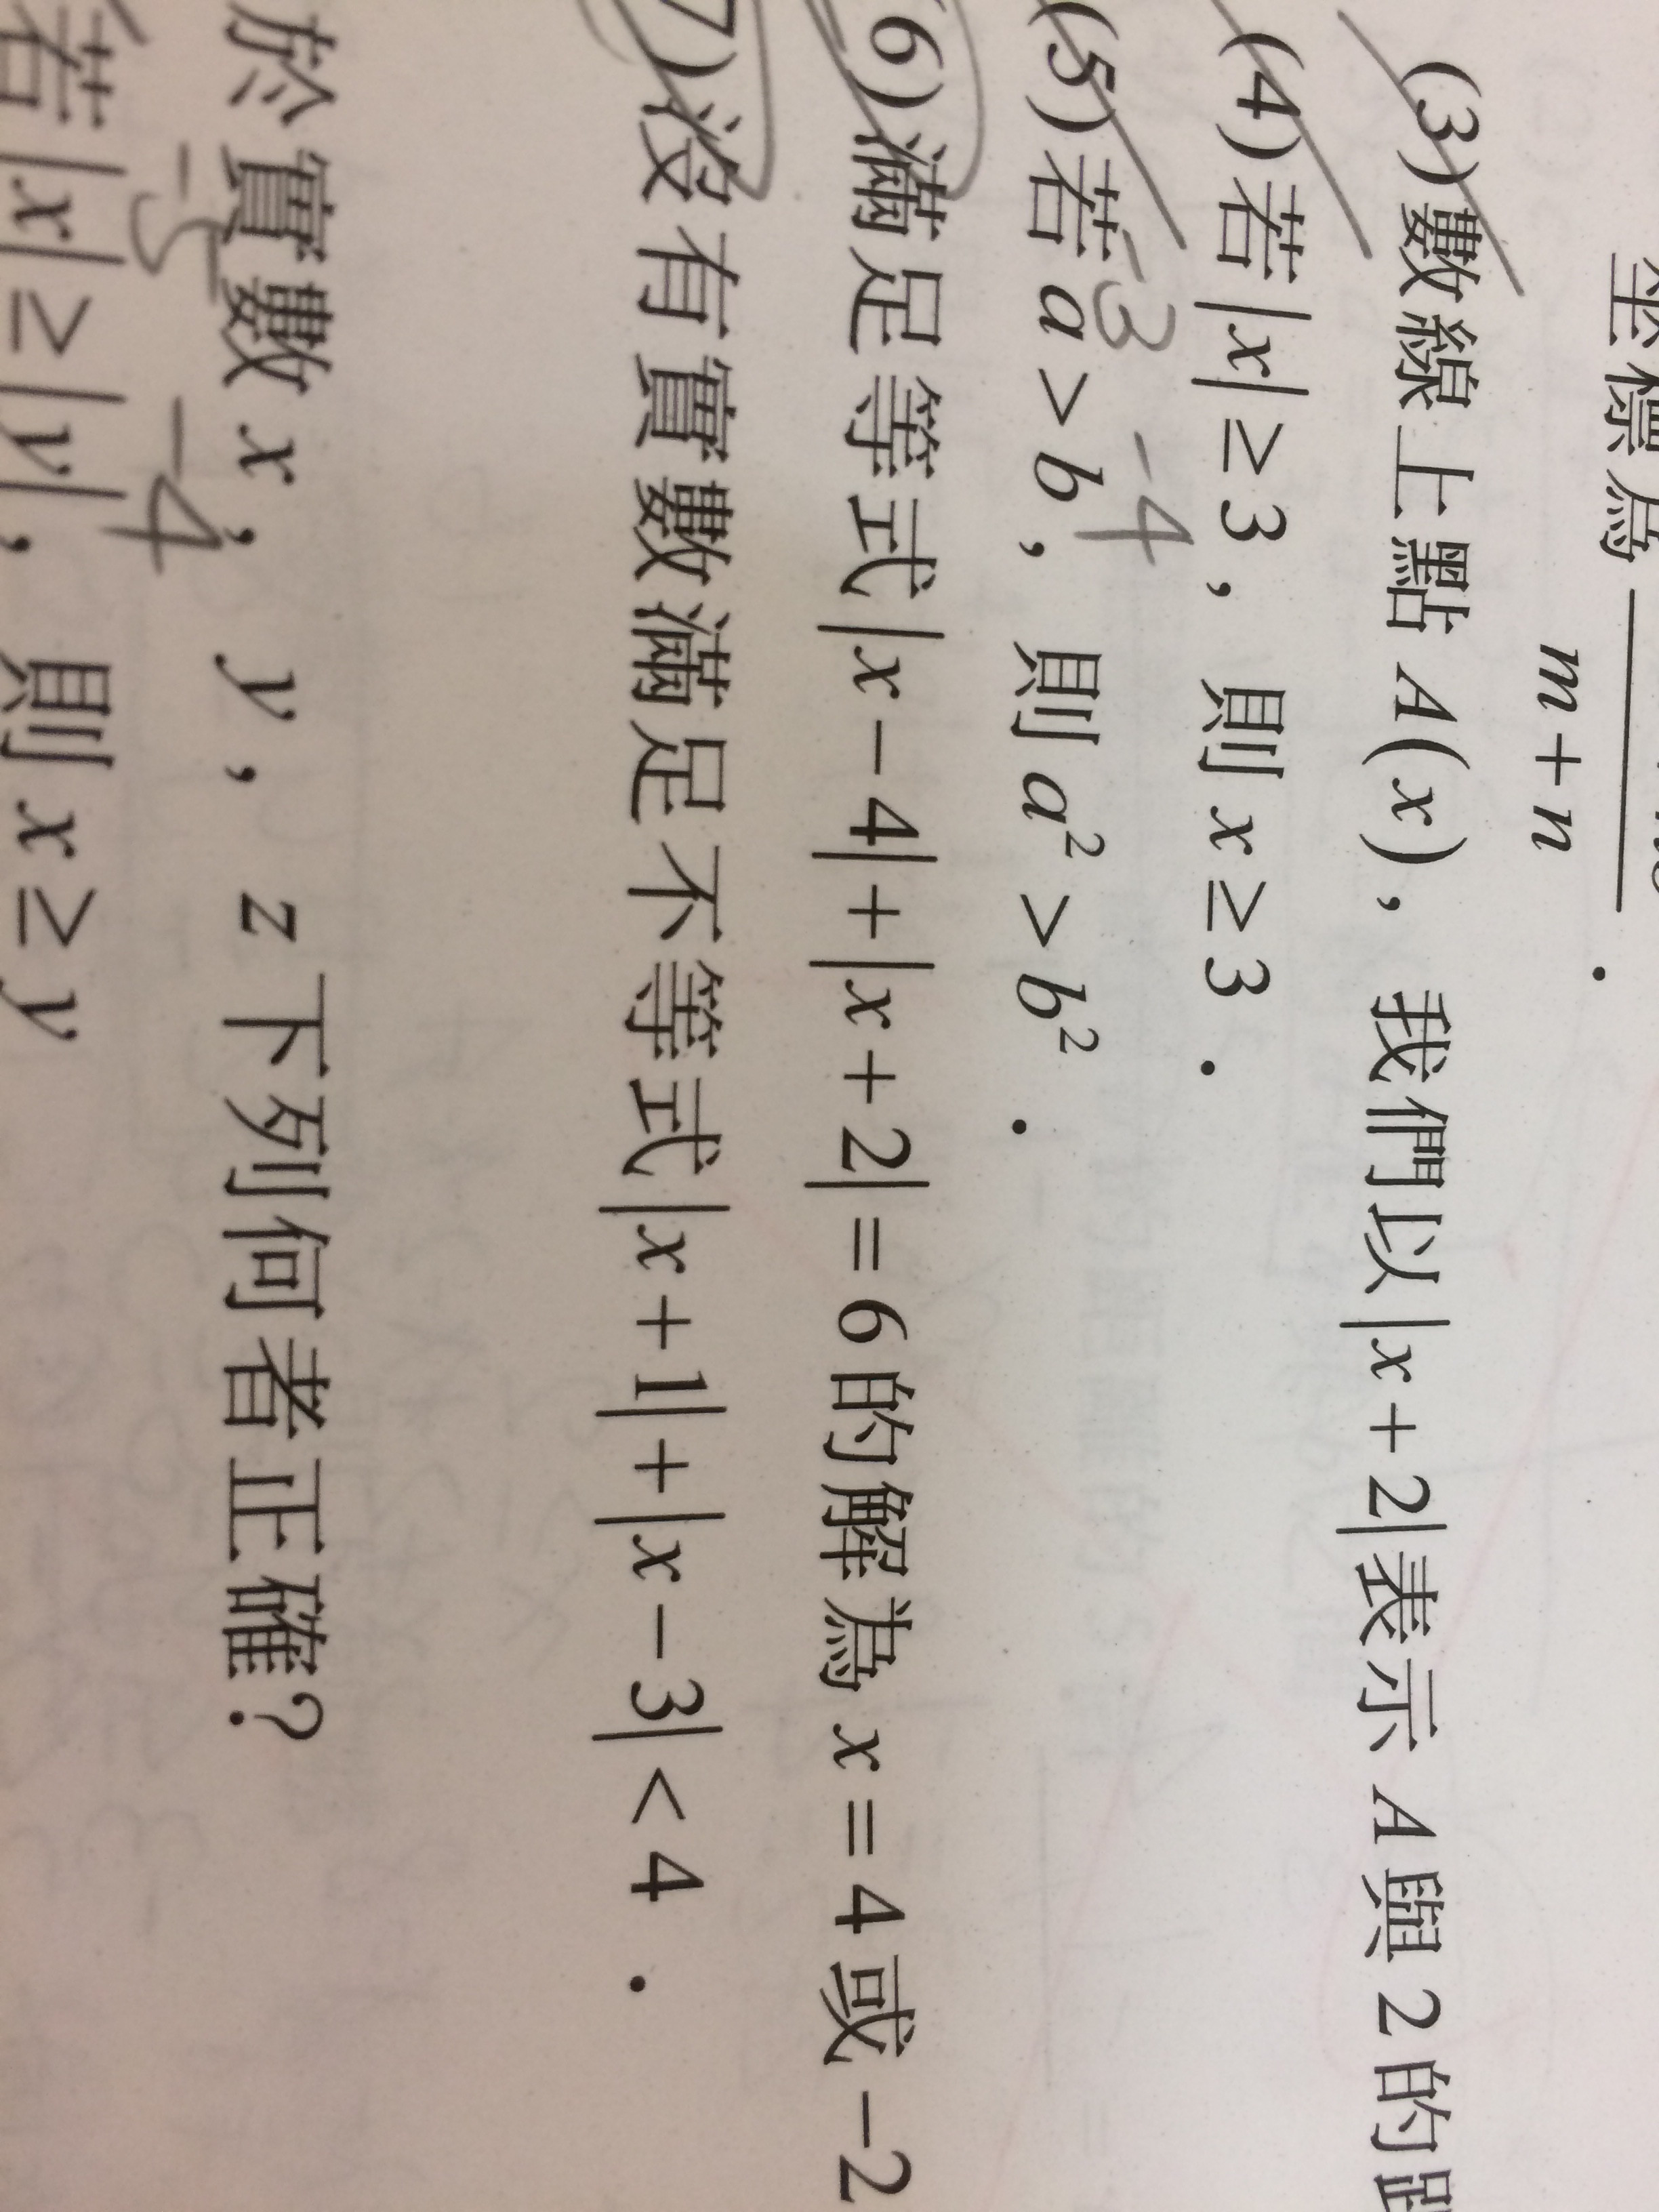 坐標為
m + n
(3) 數線上點 A(x)，我們以 |x + 2| 表示 A 與 2 的距
(4) 若 |x| ≥ 3，則 x ≥ 3．
-3 -4
(5) 若 a > b，則 a² > b²．
6) 滿足等式 |x − 4| + |x + 2| = 6 的解為 x = 4 或 −2
7) 沒有實數滿足不等式 |x + 1| + |x − 3| < 4．
於實數 x，y，z 下列何者正確？
-5 -4
若 |x| ≥ |y|，則 x ≥ y